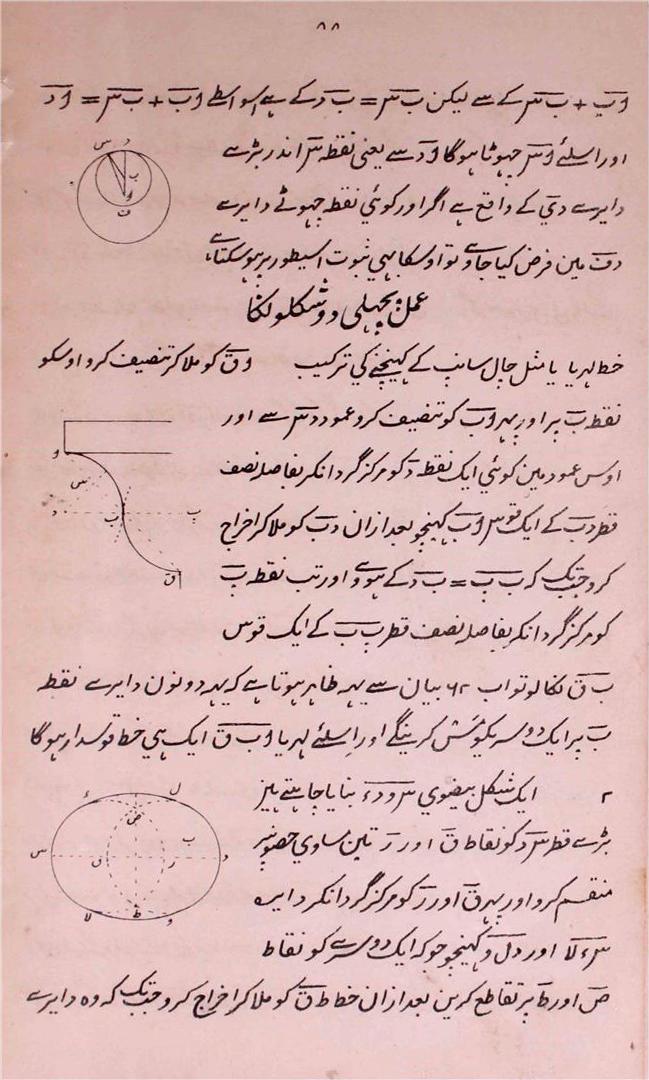 ۸۸
اب + ب س کے سے لیکن ب س = ب د کے ہے اسواسطے اب + ب س = اد
اور اسلئے اس چھوٹا ہوگا اد سے یعنی نقطہ س اندر بڑے
دایرے دی کے واقع ہے اگر اور کوئي نقطہ چہوٹے دایرے
دف مین فرض کیا جاوے تو اوسکا بہی ثبوت اسیطور پر ہوسکتا ہے
عمل پچہلی دو شکلونکا
خط لہریا یا مثل چال سانپ کے کہینچنے کي ترکیب و ق کو ملا کر تنصیف کرو اوسکو
نقطہ ب پر اور پہر و ب کو تنصیف کرو عمود د س سے اور
اوس عمود مین کوئي ایک نقطہ د کو مرکز گردانکر بفاصلہ نصف
قطر د ب کے ایک قوس و ب کہینچو بعد ازان د ب کو ملا کر اخراج
کرو جبتک کہ ب پ = ب د کے ہووے اور تب نقطہ پ
کو مرکز گردانکر بفاصلہ نصف قطر پ ب کے ایک قوس
ب ق نکالو تو اب ۶۲ بیان سے یہہ ظاہر ہوتا ہے کہ یہہ دونون دایرے نقطہ
ب پر ایک دوسریکو مَس کرینگے اور اِسلئے لہریا و ب ق ایک ہي خط قوسدار ہوگا
۲ ایک شکل بیضوي س و د ء بنایا چاہتے ہین
بڑے قطر س د کو نقاط ق اور ر تین مساوي حصونپر
منقسم کرو اور پہر ق اور ر کو مرکز گردانکر دایرہ
س ء لا اور د ل و کہینچو جو کہ ایک دوسرے کو نقاط
ض اور ط پر تقاطع کرین بعد ازان خط ط ق کو ملا کر اخراج کرو جبتک کہ وہ دایرے
س
د
ب
و
ق
و
س
د
ب
پ
ق
ء
ل
ض
ب
س
ق
ر
د
لا
ط
و